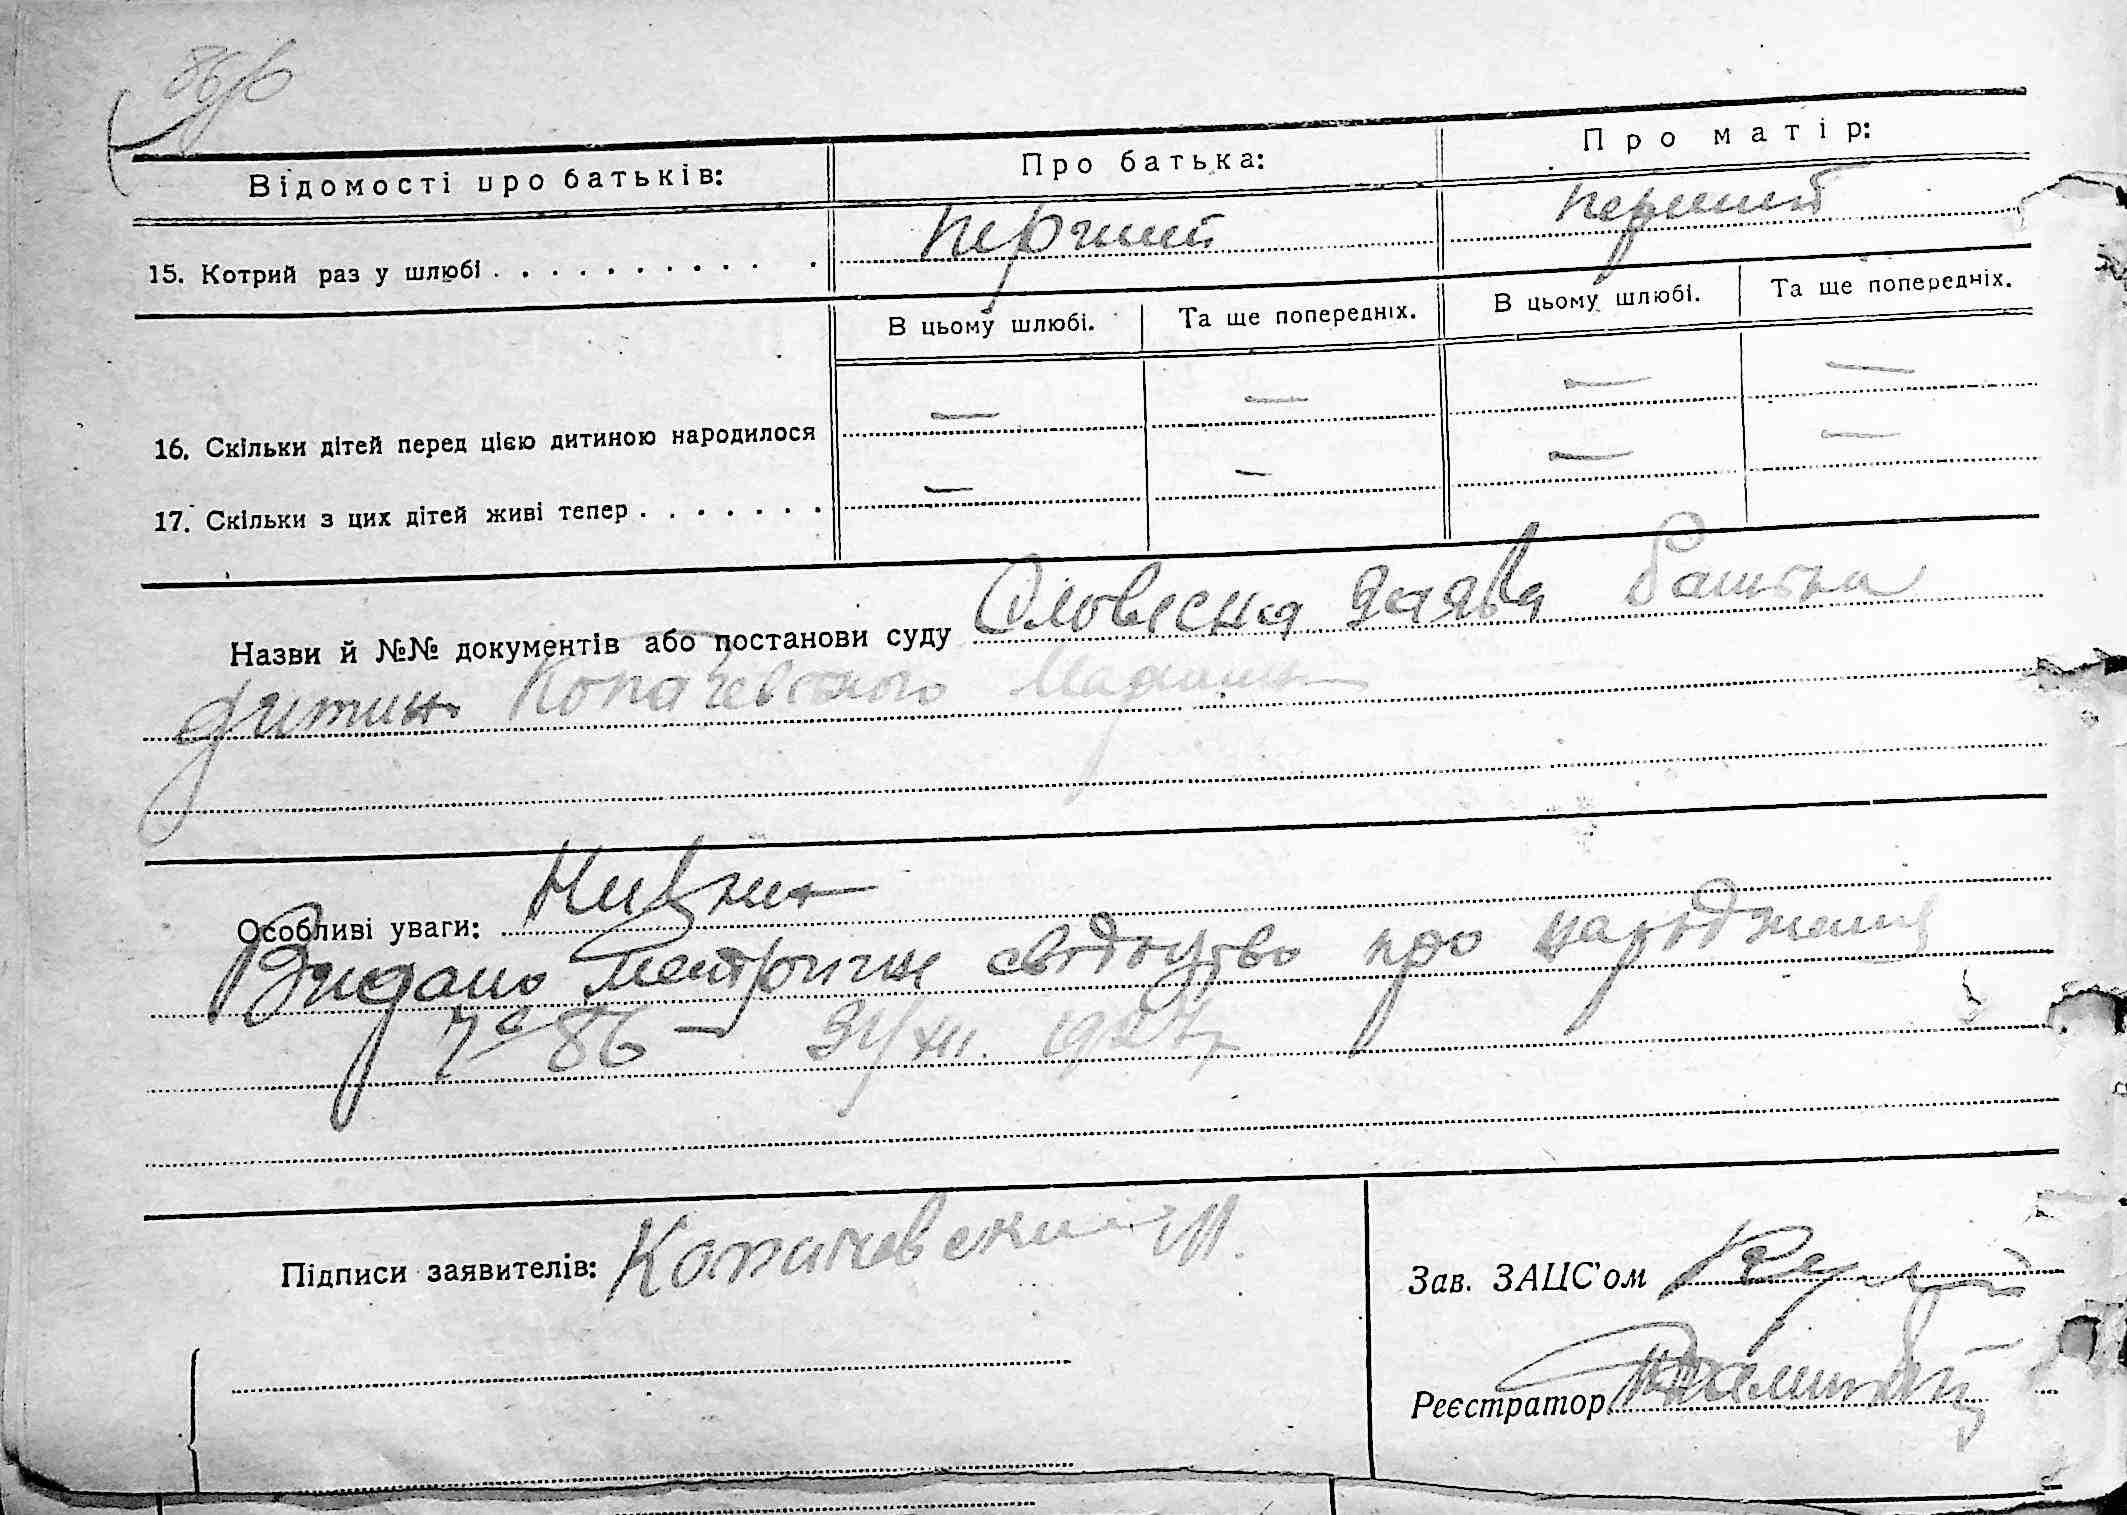 Відомості про батьків:
Про батька:
Про матір:
15. Котрий раз у шлюбі
перчий
перший
В цьому шлюбі.
Та ще попередніх.
В цьому шлюбі.
Та ще попередніх.
16. Скільки дітей перед цією дитиною народилося
— — — —
17. Скільки з цих дітей живі тепер
— — — —
Назви й №№ документів або постанови суду Словесна заява батька
дитини Копачевського
Особливі уваги:
Видано метричне свідоцтво про народження
№ 86 — XII. 1927
Підписи заявителів: Копачевский М.
Зав. ЗАЦС'ом
Реєстратор